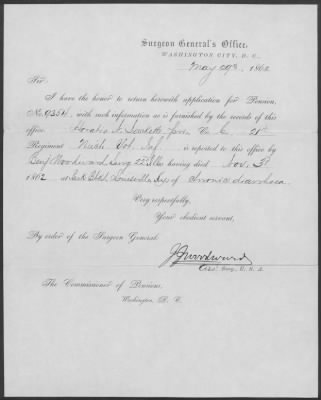 Surgeon General's Office,
WASHINGTON CITY, D. C.,
May 29th, 186
Sir:
I have the honor to return herewith application for Pension,
No. 9354, with such information as is furmished by the records of this
office. Horatio Co. C. 21st
Regiment Vol. Inf. is reported to this office by
Benj Woodward Surg 22 Ills having died Nov. 3d
1862 at Park Hospl Louisville Ky of Chronic diarrhoea.
Very respectfully,
Your obedient servant,
By order of the Surgeon General:
J J Woodward
Asst. Surg., U. S. A.
The Commissioner of Pensions,
Washington, D. C.